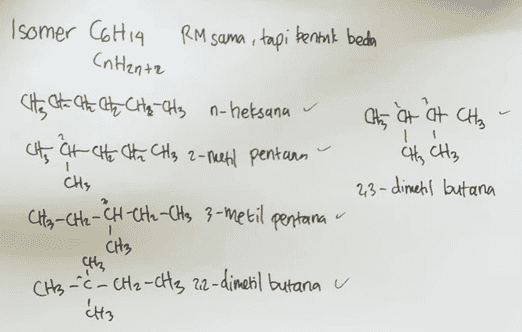 Isomer C6H14 RM sama, tapi bentuk beda
CnH2n+2
CH3 CH2 CH2 CH2 CH2-CH3 n-heksana ✓
CH3 CH-CH2-CH2 CH3 2-metil pentana ✓
2
CH3
CH3-CH2-CH-CH2-CH3 3-metil pentana ✓
3
CH3
CH3
CH3-C-CH2-CH3 2,2-dimetil butana ✓
2
CH3
2 3
CH3 CH CH CH3 ✓
CH3 CH3
2,3-dimetil butana